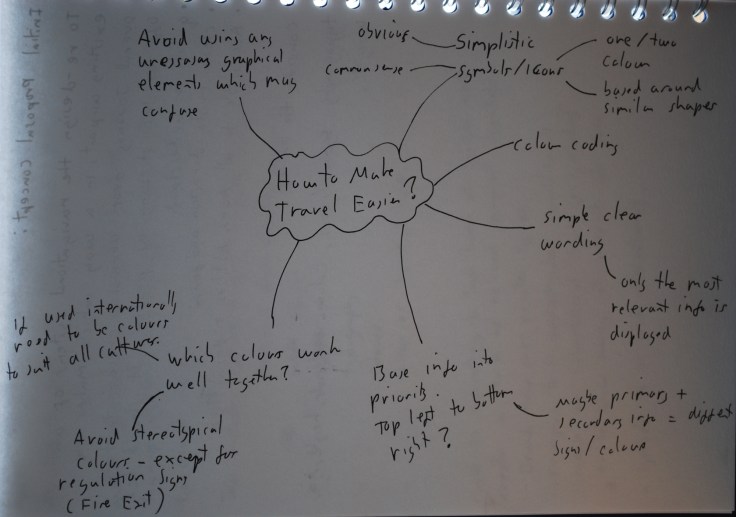 Avoid using any
unessasary graphical
elements which may
confuse
obvious
Simplistic
symbols/icons
commonsense
one/two
colour
based around
similar shapes
How to Make
Travel Easier?
colour coding
simple clear
wording
only the most
relevant info is
displayed
If used internationally
need to be colours
to suit all cultures.
which colours work
well together?
Avoid stereotypical
colours - except for
regulation signs
(Fire Exit)
Base info into
priority.
Top left to bottom
right?
Maybe primary +
secondary info = different
signs/colours
Initial proposal concept: